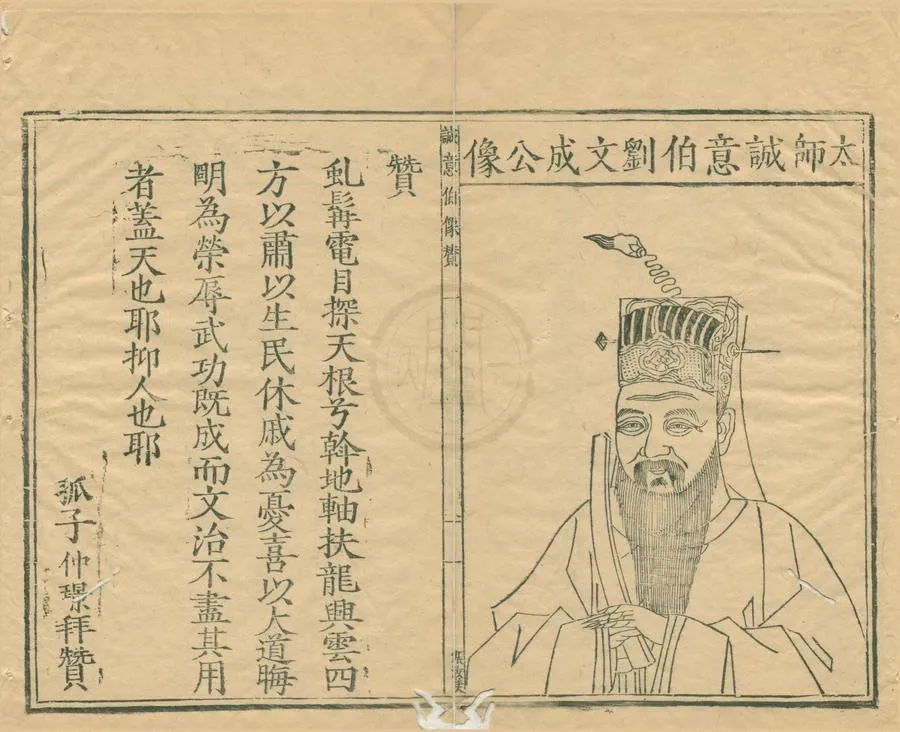 太師誠意伯劉文成公像
誠意伯像贊
一
贊
虬髯電目探天根兮斡地軸扶龍興雲四
方以肅以生民休戚為憂喜以大道晦
眀為榮辱武功既成而文治不盡其用
者蓋天也耶抑人也耶
孤子仲璟拜贊